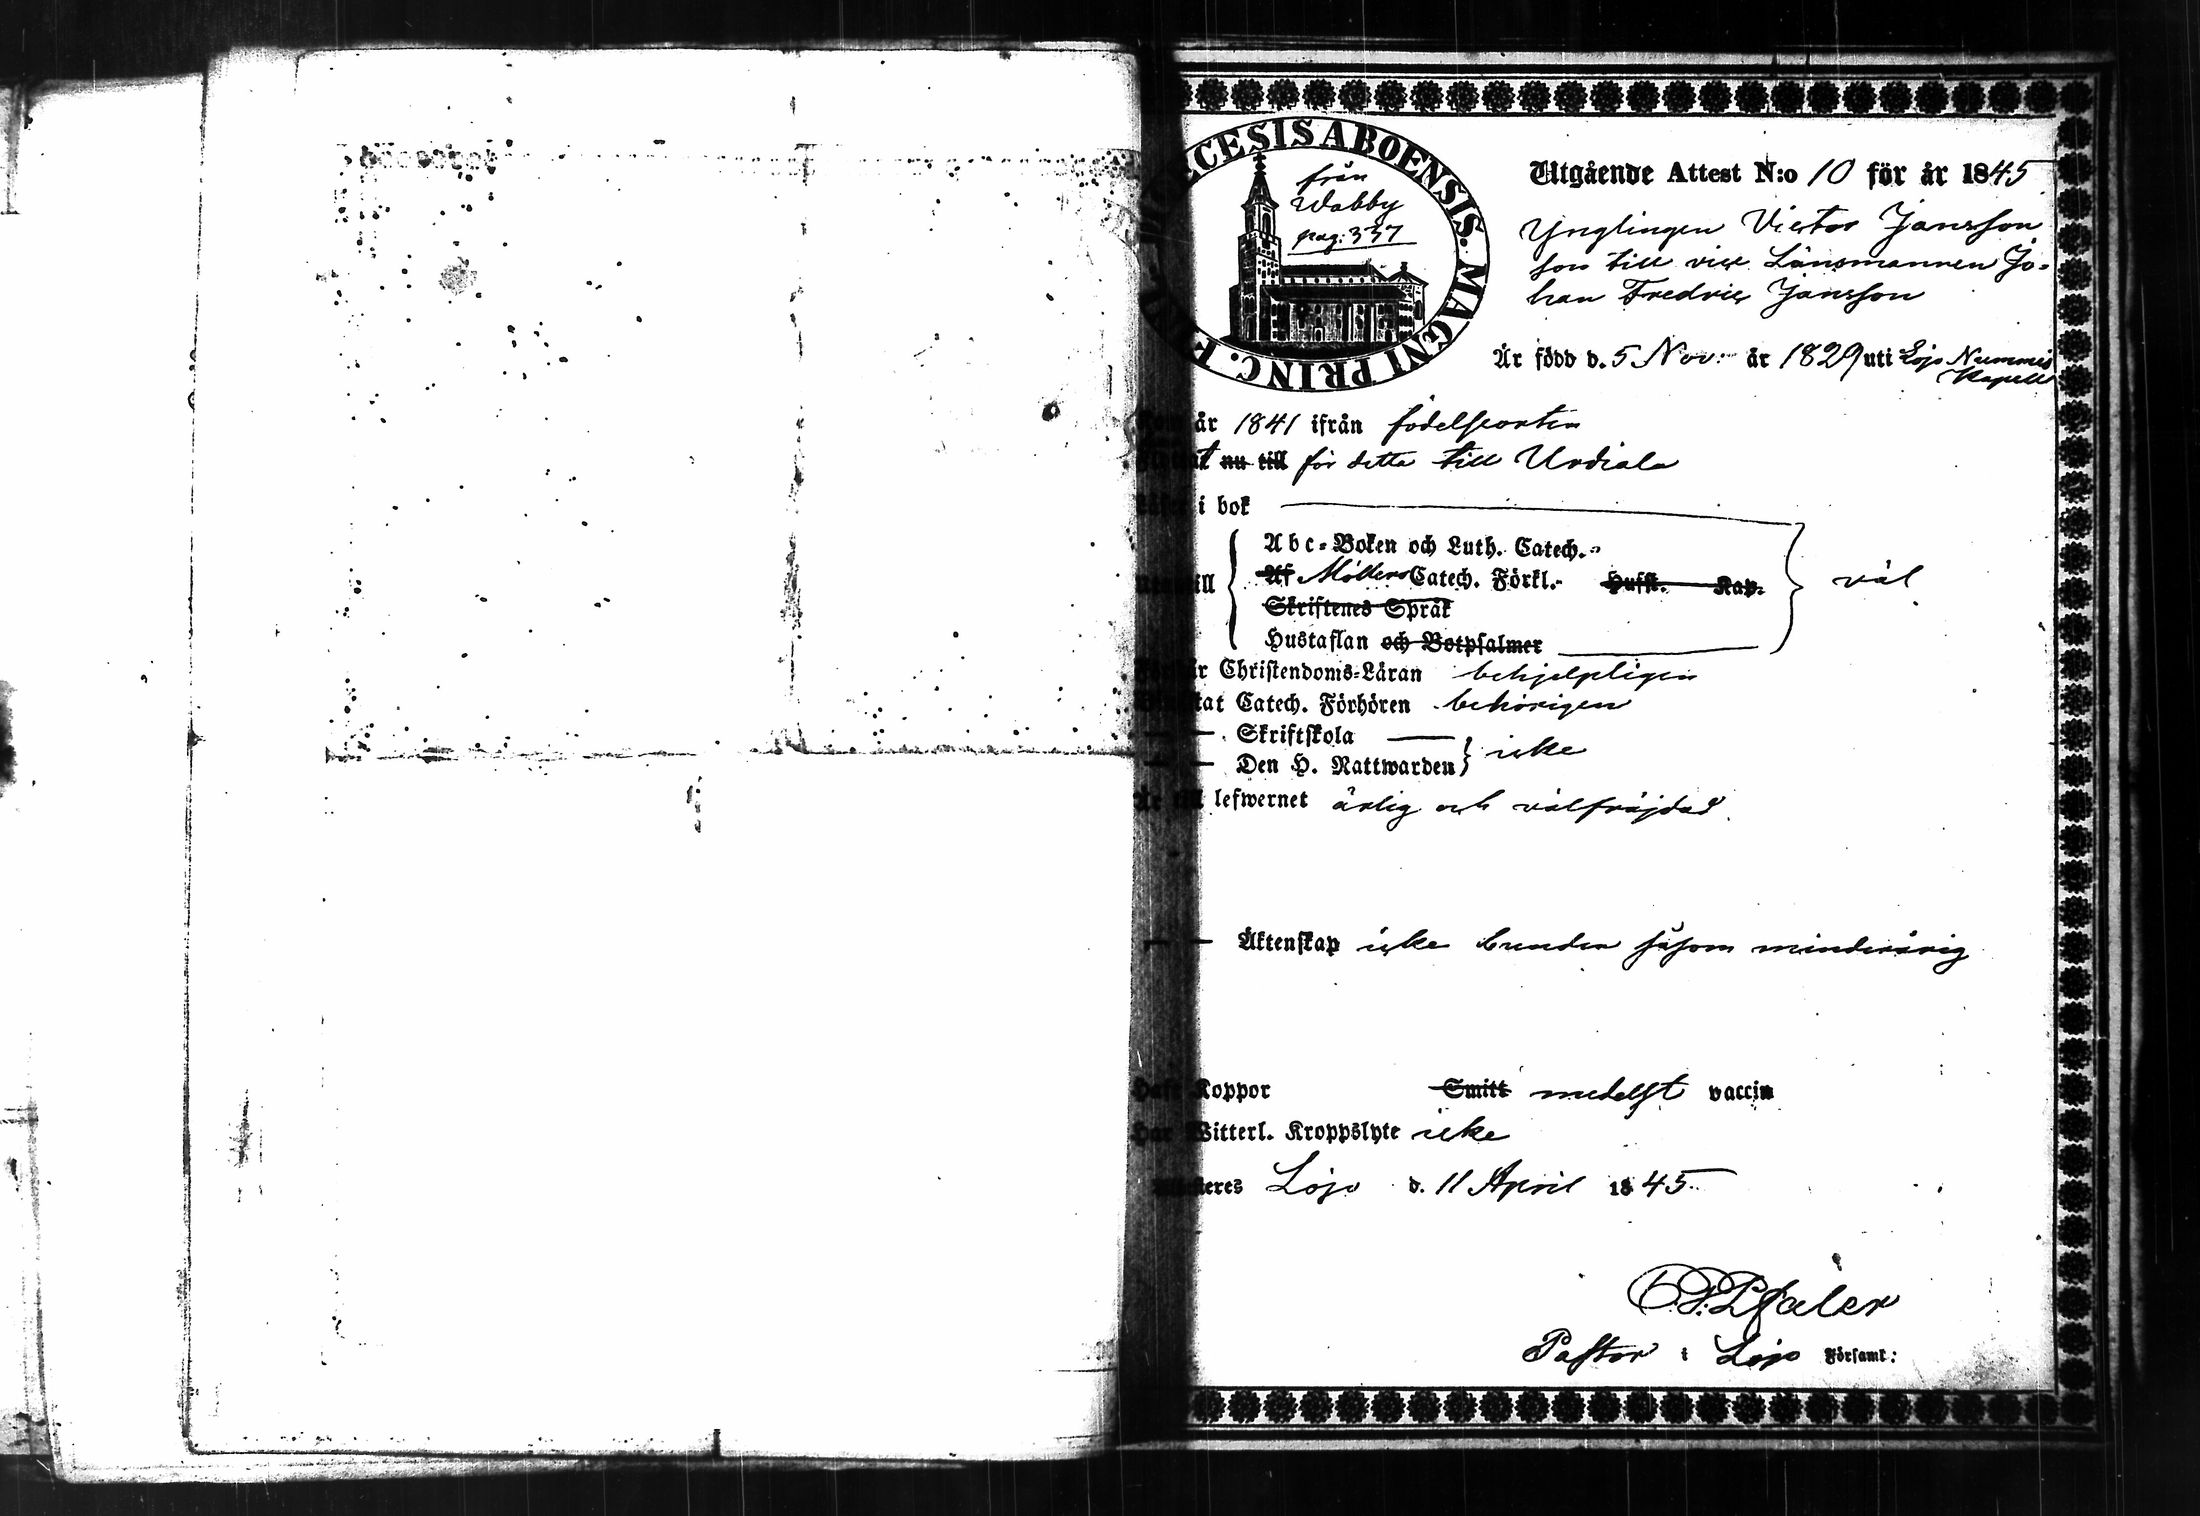 CESIS ABOENSIS. MAGNI PRINC. F
från
Wabby
pag: 337
Utgående Attest N:o 10 för år 1845
Ynglingen Victor Jansson
son till vice Länsmannen Jo-
han Fredric Jansson
Är född d. 5 Nov: år 1829 uti Lojo Nummis
Kapell
år 1841 ifrån födelseorten
nu till för detta till Urdiala
i bok
Abc-Boken och Luth. Catech.
Af Möllers Catech. Förkl. Husft. Kap.
väl
Skriftenes Språk
Hustaflan och Botpsalmer
Christendoms-Läran behjelpligen
Catech. Förhören behörigen
Skriftskola
icke
Den H. Nattwarden
Är till lefwernet ärlig och välfräjdad
Äktenskap icke bunden såsom minderårig
Haft Koppor Smitt medelst vaccin
Har Witterl. Kroppslyte icke
Lojo d. 11 April 1845
Pfaler
Pastor i Lojo Församl: